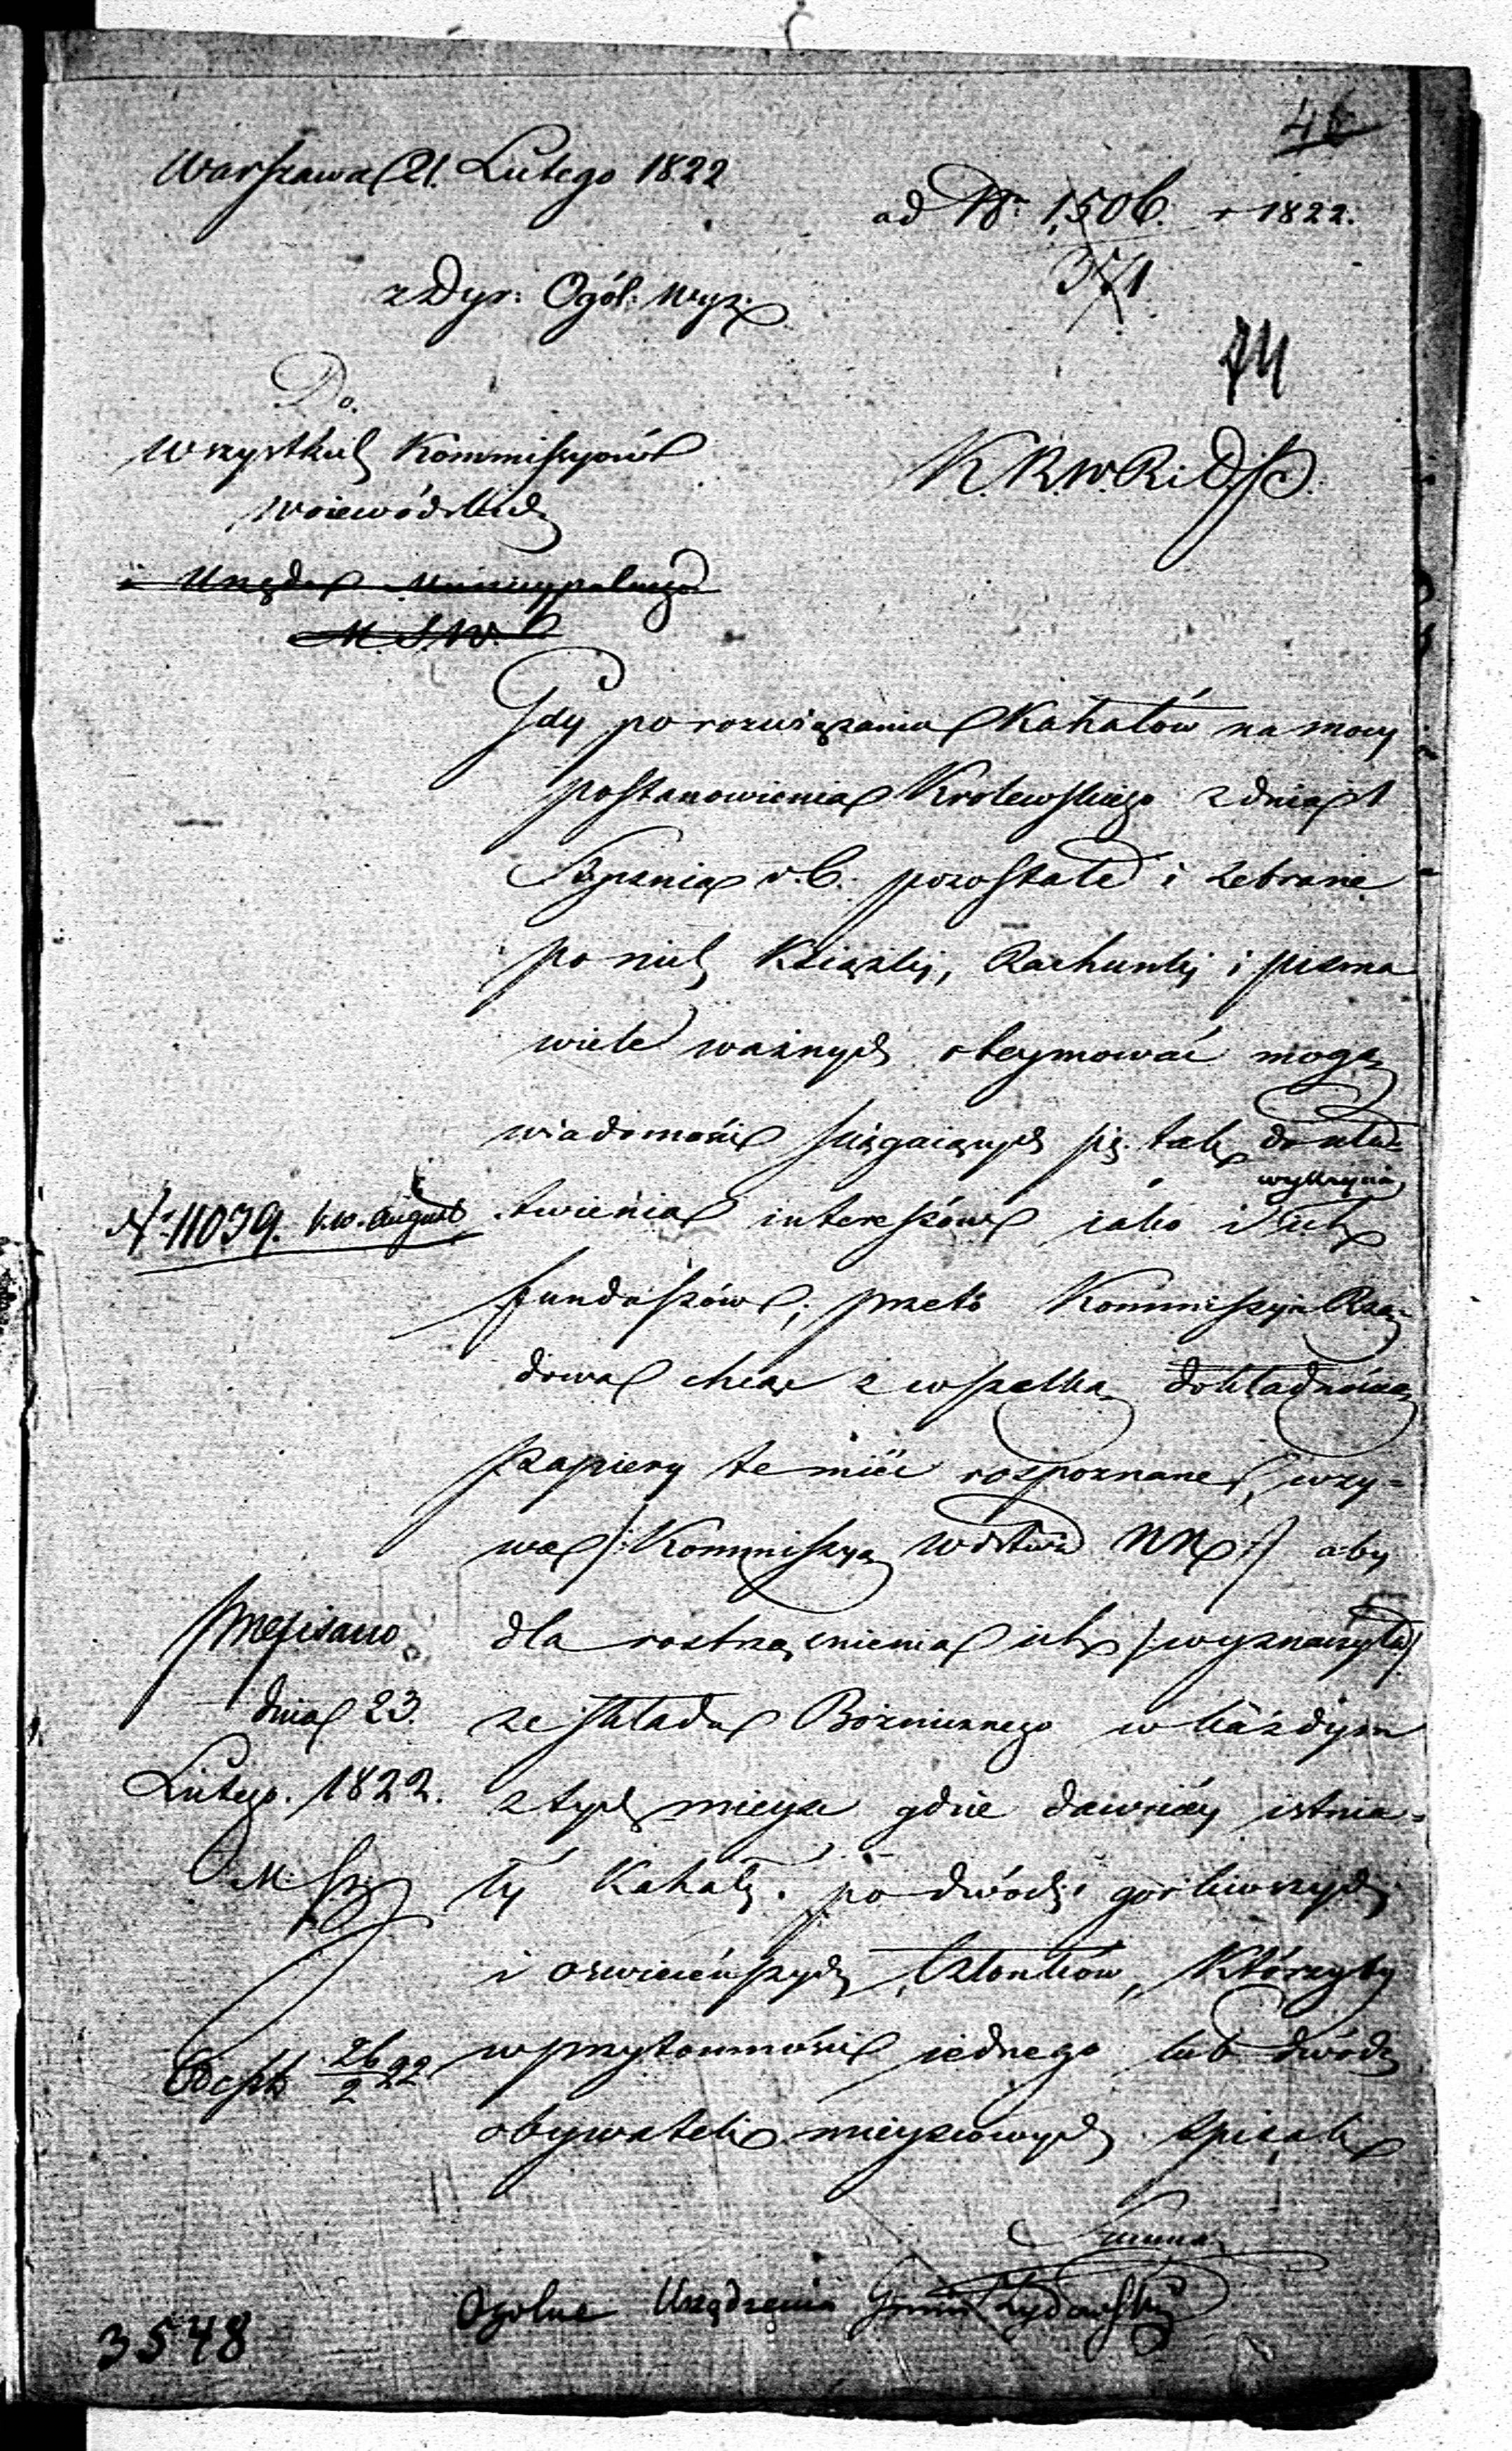 46
Warszawa 21. Lutego 1822
ad Nr. 1,506. r 1822.
371
z Dyr: Ogól: Wyz.
74
Do.
Wszystkich Kommissyów
Woiewódzkich
i Urzędu Municypalnego
M. S. W.
K. R. W. R. i O. P.
Gdy po rozwiązaniu Kahałów na mocy
postanowienia Krolewskiego z dnia 1
Stycznia r. b. pozostałe i zebrane
po nich Książki, Rachunki i pisma
wiele ważnych obeymować mogą
wiadomości ściągaiących się tak do ułat-
wykrycia
twienia interessów iako i ich
funduszów; przeto Kommissyia Rzą-
dowa chcąc z wszelką dokładnością
papiery te mieć rozpoznane, wzy-
wa /: Kommissyą Wdztwa NN :/ aby
dla roztrząśnienia ich wyznaczyła
ze składu Bożnicznego w każdym
z tych mieysc gdzie dawniéy istnia-
ły Kahały. po dwóch gorliwszych
i oświecénszych Członków, którzyby
w przytomności iednego lub dwóch
obywateli mieyscowych spisali
N: 11039. K.W. August
przepisano
dnia 23.
Lutego. 1822.
Odesłt 26/2 22
Summa
Ogolne Urządzenia Gmin Żydowskich
3548